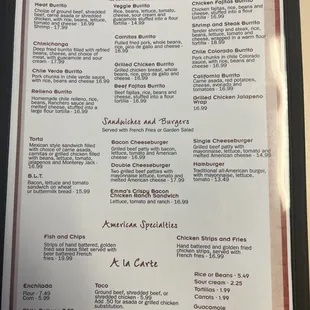 Meat Burrito
Choice of ground beef, shredded
beef, carne asada or shredded
chicken, with rice, beans, lettuce,
tomato and cheese - 16.99
Shrimp - 17.99
Chimichanga
Deep fried burrito filled with
refried beans, cheese, and choice
of meat, with guacamole and sour
cream - 17.99
Chile Verde Burrito
Pork chunks in salsa verde sauce
with rice, beans and cheese - 16.99
Relleno Burrito
Homemade chile relleno, rice,
beans, Ranchero sauce and
melted cheese, stuffed in a
large flour tortilla - 16.99
Veggie Burrito
Rice, beans, lettuce, tomato,
cheese, sour cream and
guacamole stuffed into a flour
tortilla - 14.99
Carnitas Burrito
Pulled fried pork, whole beans,
rice, pico de gallo and cheese
- 16.99
Grilled Chicken Burrito
Grilled chicken breast, whole
beans, rice, pico de gallo
and cheese - 16.99
Beef Fajitas Burrito
Beef fajitas, rice, and beans
stuffed into a flour tortilla
- 16.99
Chicken Fajitas Burrito
stuffed into a flour tortilla
- 16.99
Shrimp and Steak Burrito
Tender shrimp and steak, rice,
beans, lettuce, tomato and
cheese, wrapped in a warm
tortilla
Chile Colorado Burrito
Pork chunks in chile Colorado
sauce, with rice, beans and
cheese - 16.99
California Burrito
Carne asada, red potatoes,
cheese, avocado, and
tomatoes - 16.99
Grilled Chicken Jalapeno
Wrap
16.99
Sandwiches and Burgers
Served with French Fries or Garden Salad
Torta
Mexican style sandwich filled
with choice of carne asada,
carnitas or grilled chicken filled
with beans, lettuce, tomato,
jalapenos and Monterey Jack
- 16.99
B.L.T.
Bacon, lettuce and tomato
sandwich on wheat or
buttermilk bread - 15.99
Bacon Cheeseburger
Grilled beef patty with bacon,
lettuce, tomato and American
cheese - 16.99
Double Cheeseburger
Two grilled beef patties with
melted American cheese - 17.99
Emma's Crispy Bacon
Chicken Ranch Sandwich
Lettuce, tomato and ranch - 16.99
Single Cheeseburger
Grilled beef patty with
mayonnaise, lettuce, tomato and
melted American cheese - 14.99
Hamburger
Traditional all-American burger,
with mayonnaise, lettuce,
tomato - 13.49
American Specialties
Fish and Chips
Strips of hand battered, golden
fried sea bass filet served with
beer battered French
fries - 19.99
Chicken Strips and Fries
Hand battered and golden fried
chicken strips, served with
French fries - 16.99
A la Carte
Enchilada
Flour - 7.49
Corn - 5.99
Taco
Ground beef, shredded beef, or
shredded chicken - 5.99
Add .50 for asada or grilled chicken
substitution.
Rice or Beans - 5.49
Sour cream - 2.25
Tortillas - 1.99
Carrots - 1.99
Guacamole